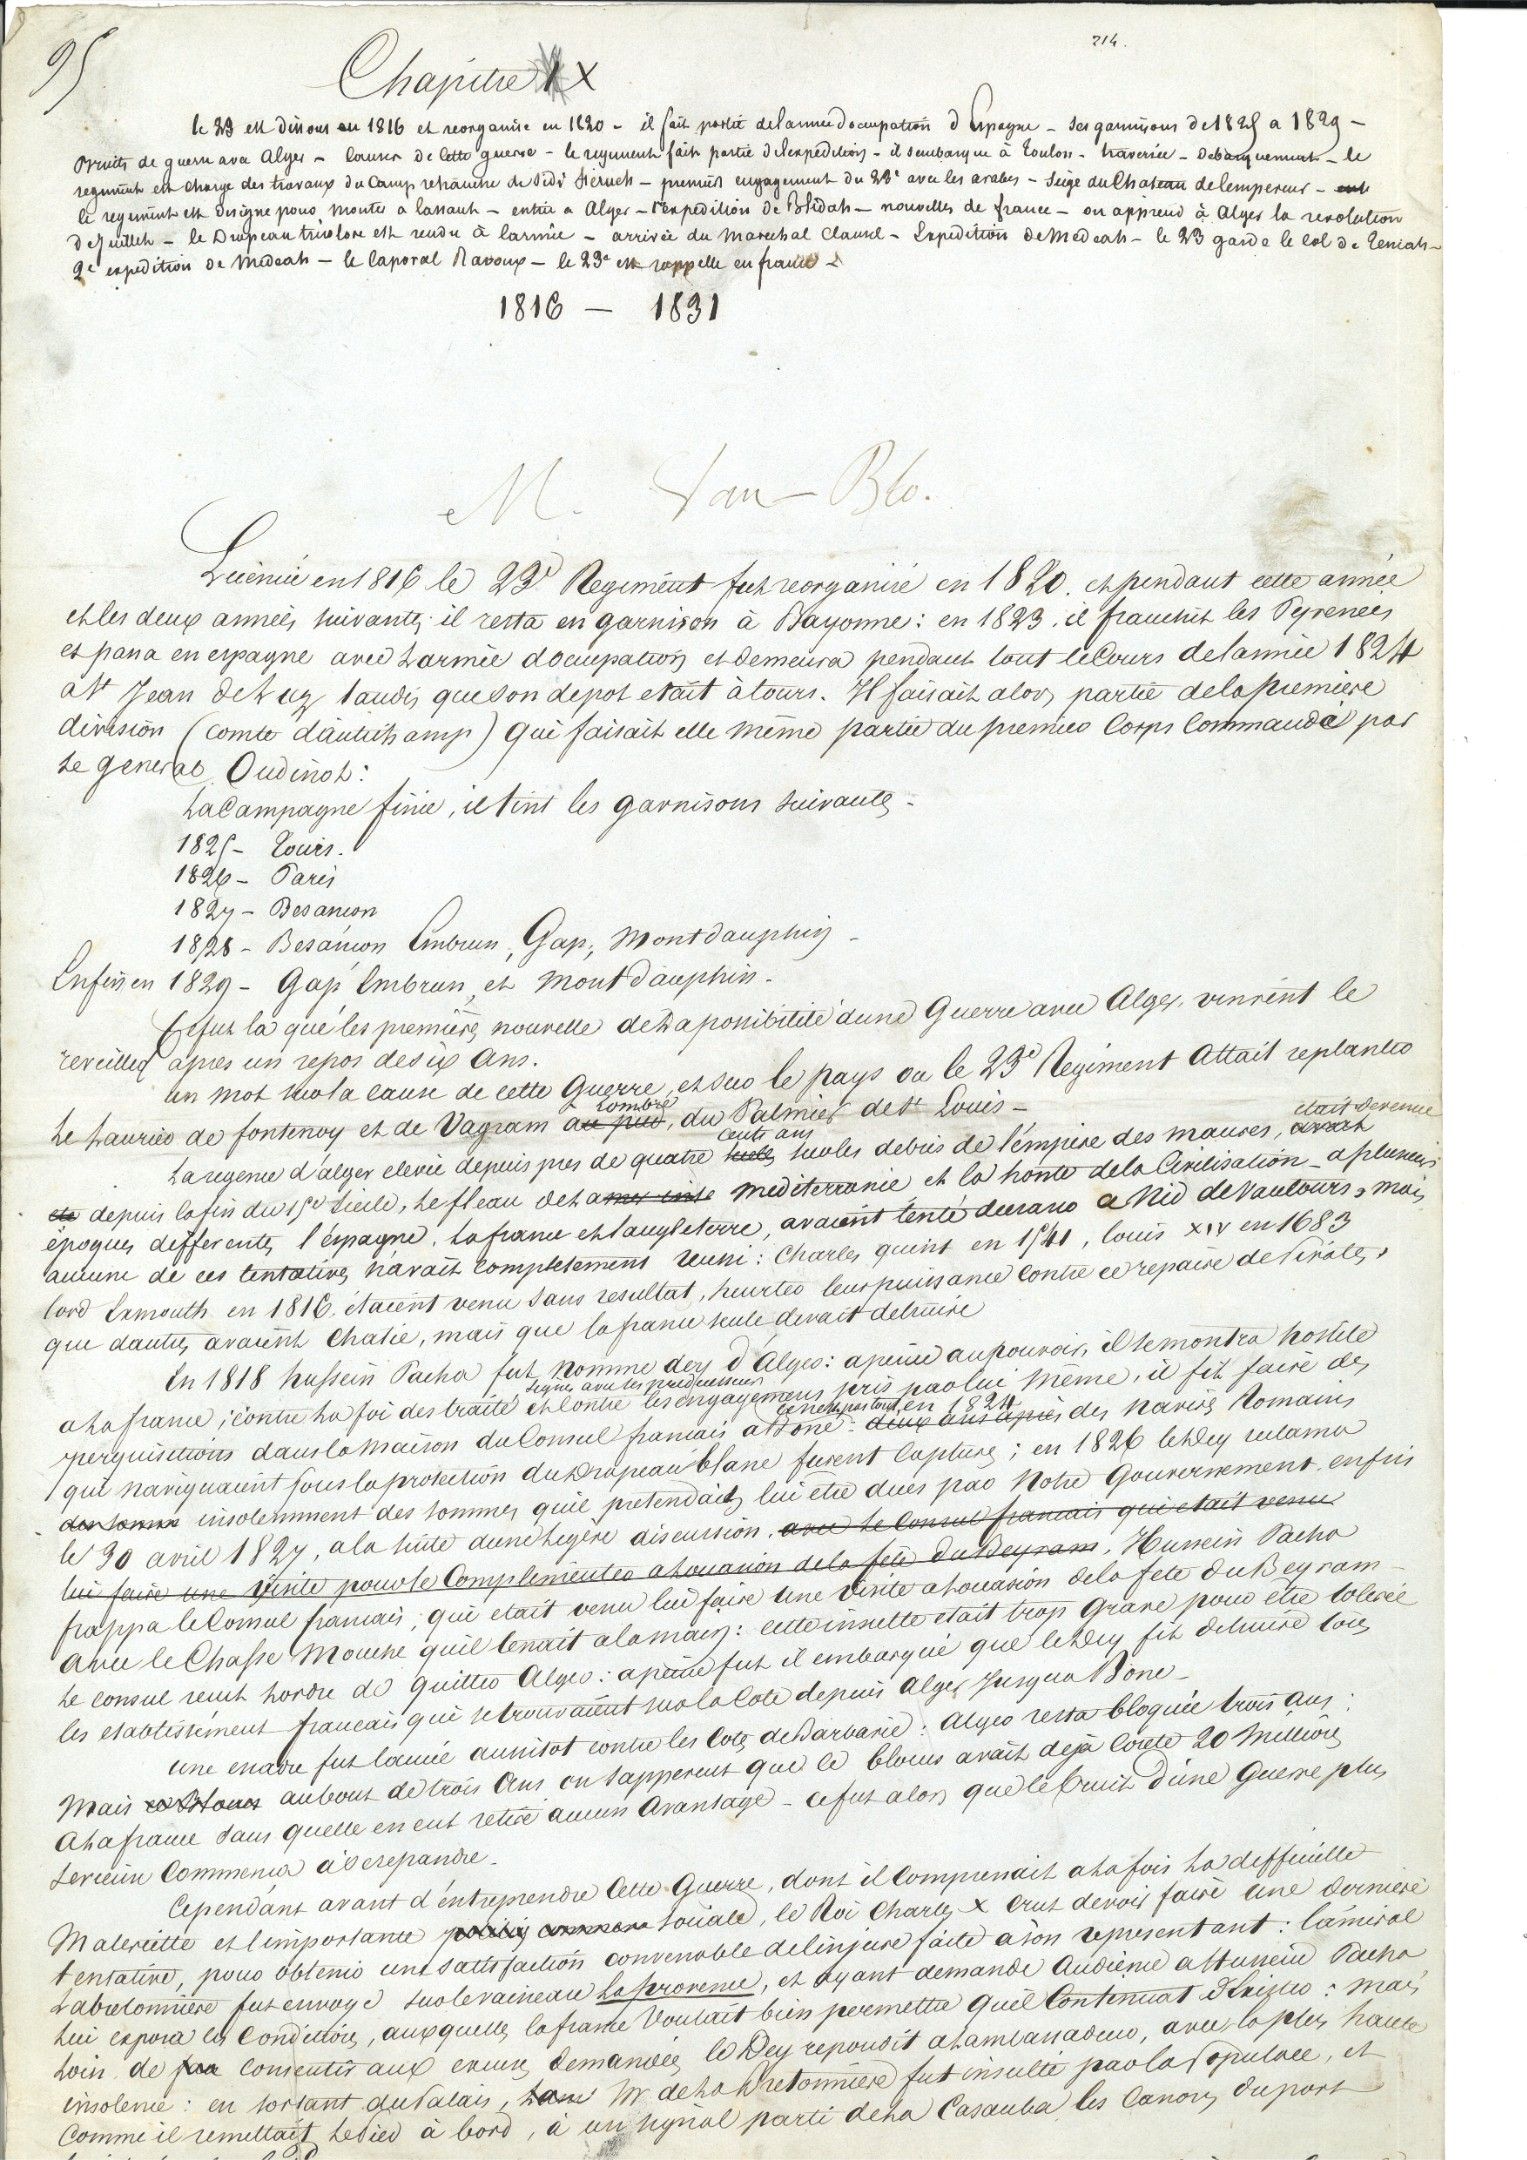 95
214.
Chapitre IX
le 23 est dissous en 1816 et reorganise en 1820 - il fait partie de larmee doccupation d Espagne - ses garnisons de 1825 a 1829 -
Bruits de guerre avec Alger - Causes de Cette guerre - le regiment fait partie de lexpedition - il sembarque à Toulon - traversée - debarquement - le
regiment est charge des travaux du Camp retranche de Sidi Feruch - premier engagement du 23e avec les arabes - Siège du Chateau de lempereur -
le regiment est designe pour monter a lassaut - entrée a Alger - lexpedition de Blidah - nouvelles de france - on apprend à Alger la revolution
de Juillet - le Drapeau tricolore est rendu à larmée - arrivée du Marechal Clausel - Expedition de Medeah - le 23 garde le Col de Teniah -
2e expedition de Medeah - le Caporal Ravoux - le 23e est rappelle en france -
1816 - 1831
M. Van Blo.
Licencié en 1816 le 23e Regiment fut reorganisé en 1820. et pendant cette année
et les deux années suivantes il resta en garnison à Bayonne : en 1823. il franchit les Pyrenees
et passa en espagne avec larmée doccupation et demeura pendant tout le Cours de lannée 1824
a St Jean de Luz tandis que son depot etait à tours. Il faisait alors partie de la première
division (Comte d'autichamp) qui faisait elle même partie du premier Corps Commandé par
le general Oudinot :
La Campagne finie, il tint les garnisons suivantes -
1825 - Tours.
1826 - Paris
1827 - Besancon
1828 - Besancon Embrun, Gap, Montdauphin -
Enfin en 1829 - Gap Embrun, et Montdauphin -
Ce fut la que les premières nouvelle de la possibilité d'une Guerre avec Alger. vinrent le
reveiller apres un repos de six ans.
un mot sur la cause de cette Guerre, et sur le pays ou le 23e Regiment Allait replanter
le Laurier de fontenoy et de Vagram au pied lombre, du Palmier de St Louis -
La regence d'alger elevée depuis pres de quatre siecles cents ans sur les debris de l'empire des maures, avait était devenue
ete depuis la fin du 15e siècle, le fleau de la mer inte mediterranée et la honte de la Civilisation - a plusieurs
époques differentes l'espagne, la france et langleterre, avaient tenté decraser ce Nid de Vautours, mais
aucune de ces tentatives n'avait completement reussi : Charles quint en 1541, louis XIV en 1683
lord Exmouth en 1816. étaient venu sans resultat, heurter leur puissance Contre ce repaire de Pirates,
que dautres avaient Chatié, mais que la france seule devait detruire
En 1818 hussein Pacha fut nomme dey d'Alger : apeine au pouvoir, il se montra hostile
a la france ; contre la foi des traité signes avec les predecesseurs et Contre les engagemens pris par lui même, il fit faire des
perquisitions dans la maison du Consul francais a Bone : deux ans apres en 1824 des navires Romains
qui naviguaient sous la protection du Drapeau blanc furent Capturés ; en 1826 le Dey reclama
des somme insolemment des sommes quil pretendait lui être dues par Notre Gouvernement. enfin
le 30 avril 1827, a la suite dune legère discussion, avec le Consul francais qui etait venu
lui faire une visite pour le Complimenter a loccasion de la fete du Beyram, Hussein Pacha
frappa le Consul francais, qui etait venu lui faire une Visite a loccasion de la fete du Beyram -
avec le Chasse Mouche quil tenait a la main : cette insulte etait trop Grave pour etre tolerée
le consul recut lordre de quitter Alger : apeine fut il embarqué que le Dey fit detruire tous
les etablissement francais qui se trouvaient sur la Cote depuis Alger Jusqua Bone -
une escadre fut lancée aussitot contre les Cotes de Barbarie : Alger resta bloquée trois ans :
Mais ce blocus au bout de trois Ans on sappercut que le blocus avait déja Couté 20 Millions
a la france sans quelle en eut retiré aucun Avantage - ce fut alors que le bruit d'une Guerre plus
serieuse Commenca à se repandre -
Cependant avant d'entreprendre Cette Guerre, dont il Comprenait a la fois la difficulte
Materielle et limportance sociale, le Roi Charles X Crut devoir faire une dernière
tentative, pour obtenir une satisfaction convenable de linjure faite à son representant : lamiral
Labretonnière fut envoyé sur le vaisseau La provence, et ayant demandé Audience a Hussein Pacha
lui exposa les Conditions, auxquelles la france Voulait bien permettre quil Continuat dexister : mais
loin de Consentir aux excuses demandées le Dey repondit a lambassadeur, avec la plus haute
insolence : en sortant du Palais, Mr de la Bretonnière fut insulté par la Populace, et
Comme il remettait le Pied à bord, à un signal parti de la Casauba les Canons du port